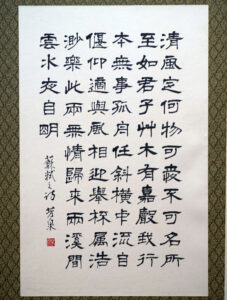 清風定何物可愛不可名所
至如君子艸木有嘉聲我行
本無事孤舟任斜橫中流自
偃仰適與風相迎舉杯属浩
渺樂此兩無情歸來兩溪間
雲水夜自明
蘇軾之詩